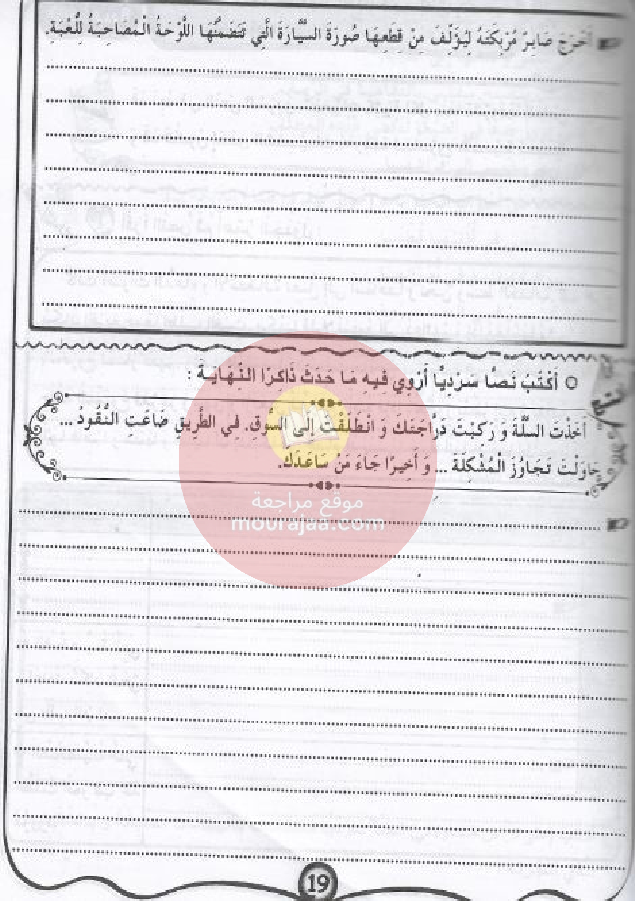 أَخْرَجَ صَابِرٌ مُرَبِكَتَهُ لِيُؤَلِّفَ مِنْ قِطَعِهَا صُورَةَ السَّيَّارَةِ الَّتِي تَتَضَمَّنُهَا اللَّوْحَةُ الْمُصَاحِبَةُ لِلُّعْبَةِ.
○ أَكْتُبُ نَصًّا سَرْدِيًّا أَرْوِي فِيهِ مَا حَدَثَ ذَاكِرًا النِّهَايَةَ :
أَخَذْتَ السَّلَّةَ وَ رَكِبْتَ دَرَّاجَتَكَ وَ انْطَلَقْتَ إِلَى السُّوقِ. فِي الطَّرِيقِ ضَاعَتِ النُّقُودُ ...
حَاوَلْتَ تَجَاوُزَ الْمُشْكِلَةِ ... وَ أَخِيرًا جَاءَ مَنْ سَاعَدَكَ.
موقع مراجعة
mourajaa.com
19